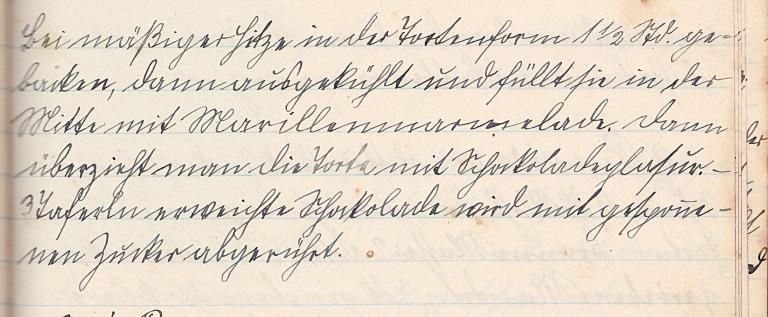 bei mäßiger Hitze in der Tortenform 1 1/2 Std. ge-
backen, dann ausgekühlt und füllt sie in der
Mitte mit Marillenmarmelade. Dann
überzieht man die Torte mit Schokoladeglasur. -
3 Taferln erweichte Schokolade wird mit gesponne-
nen Zucker abgerührt.